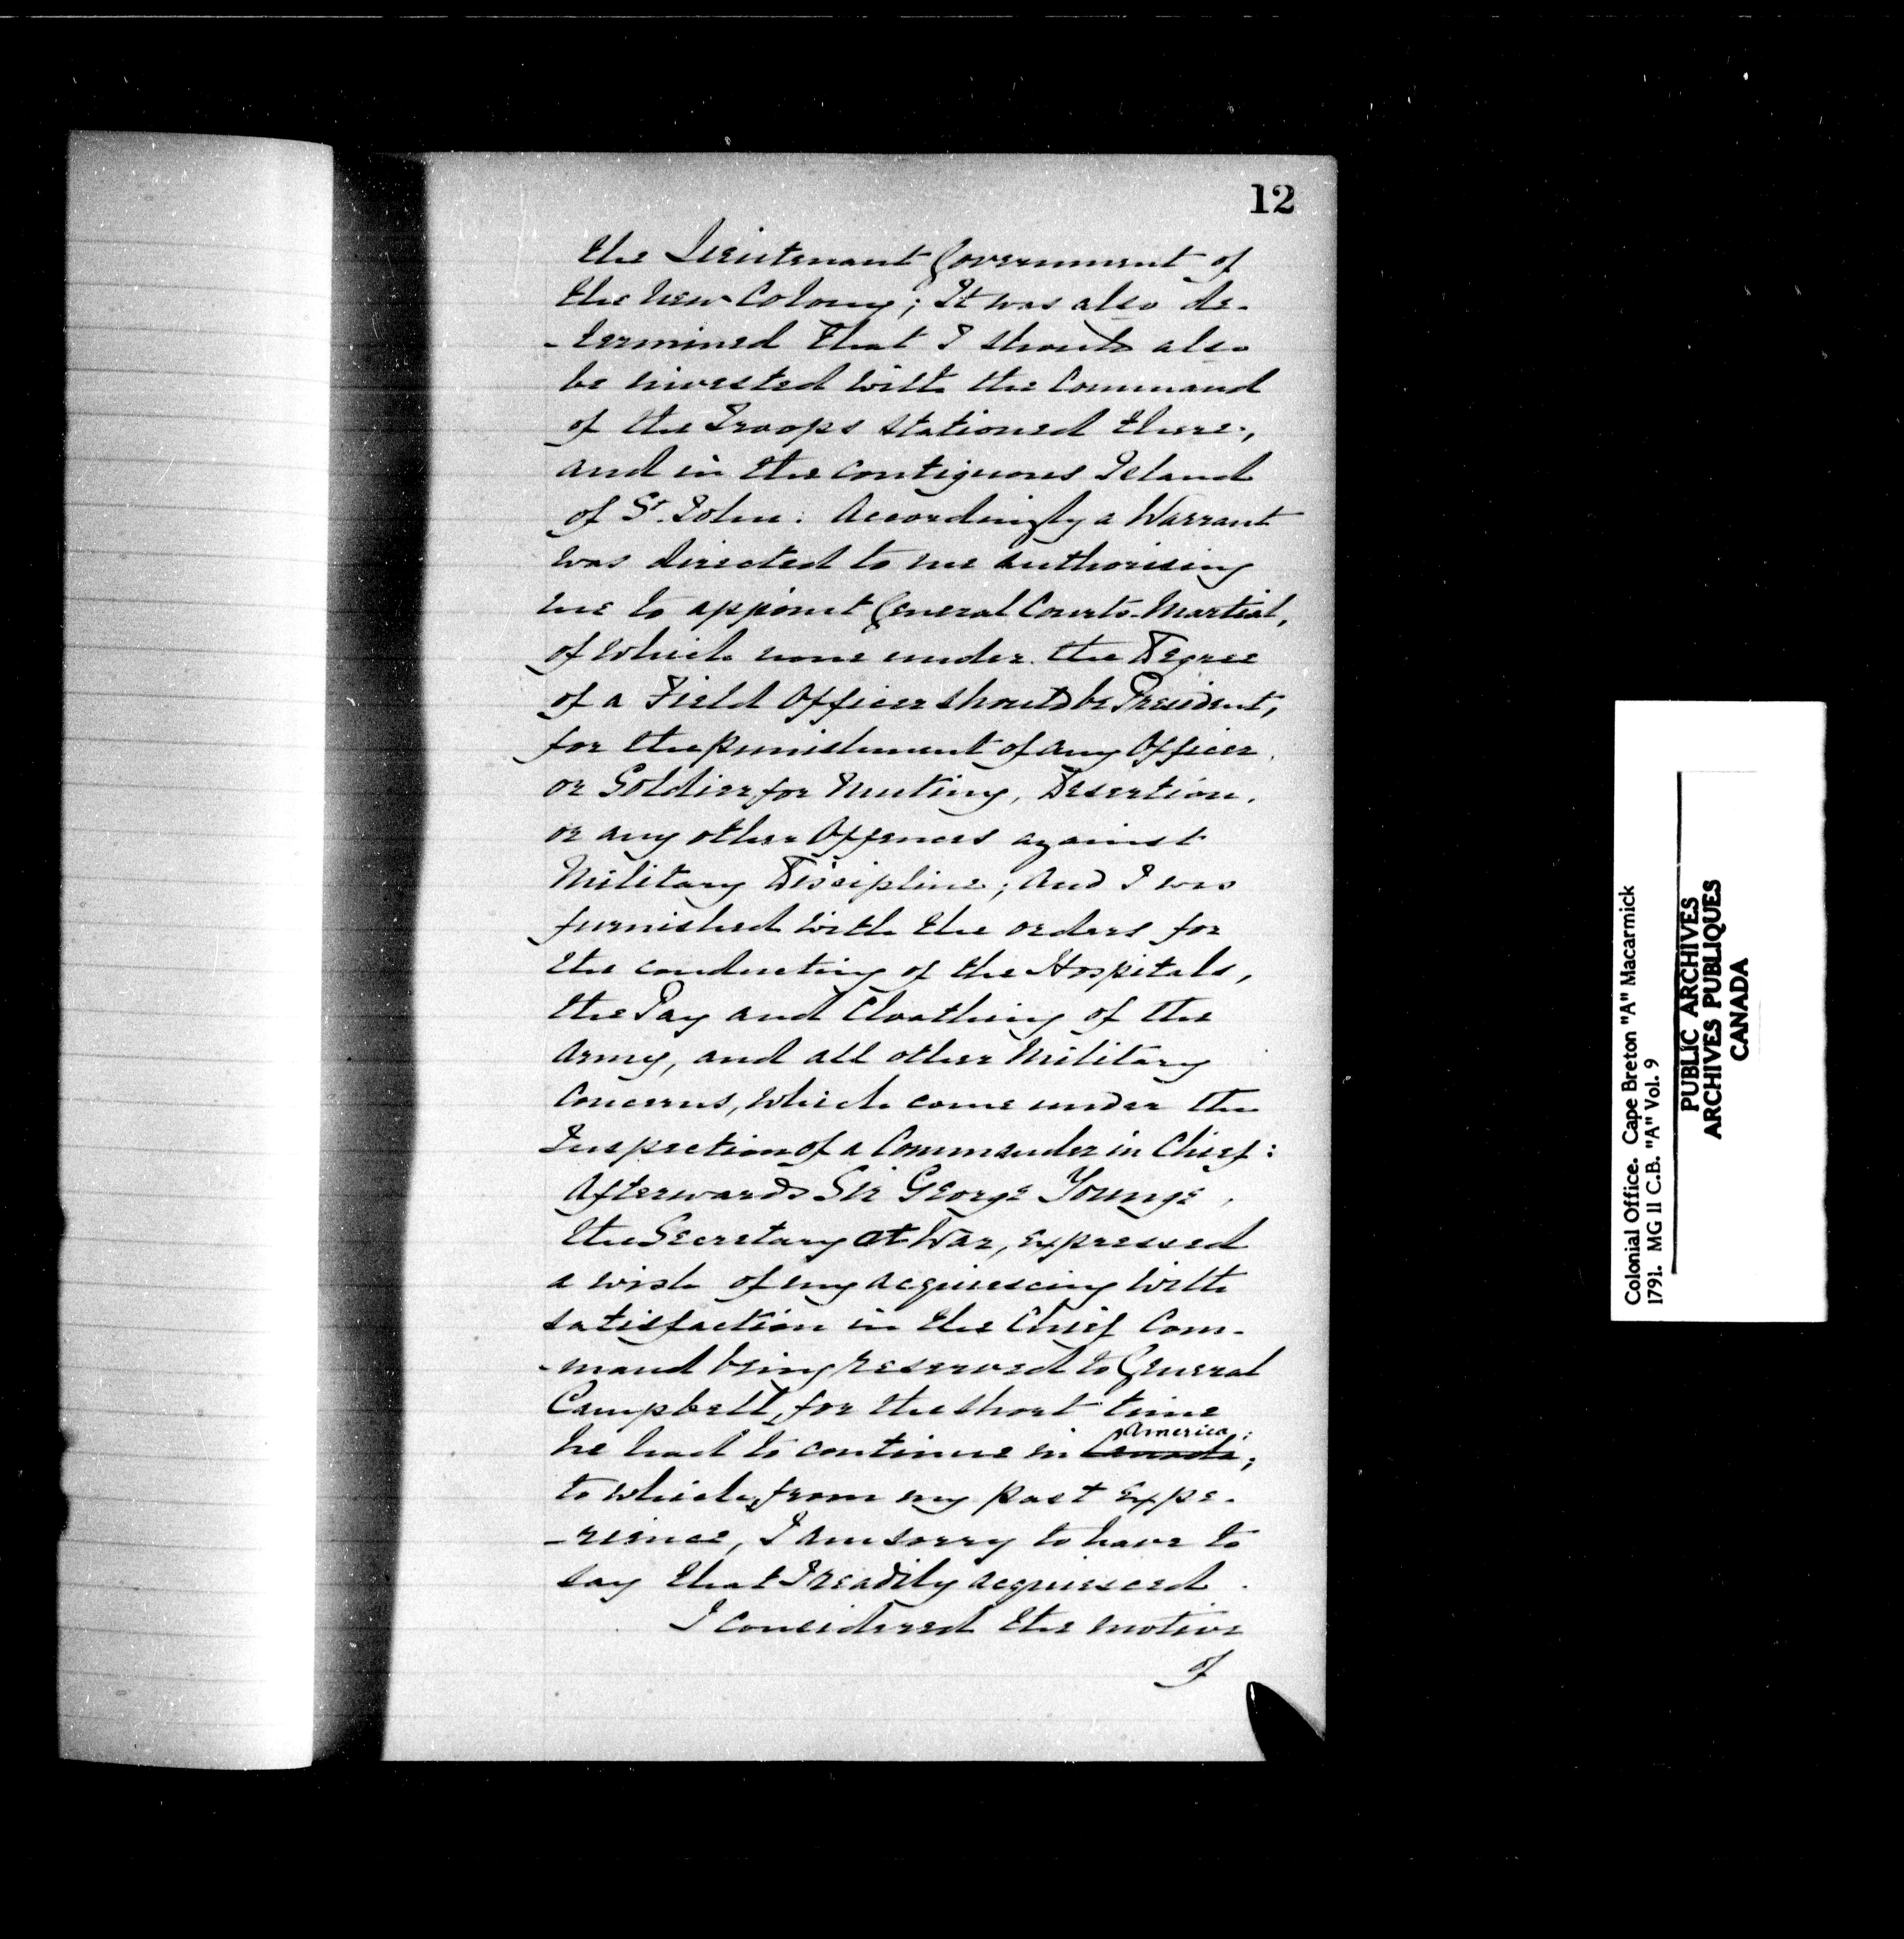 12
the Lieutenant Government of
the new Colony; It was also de-
-termined that I should also
be invested with the Command
of the Troops stationed there,
and in the contiguous Island
of St. John. Accordingly a Warrant
was directed to me authorising
me to appoint General Courts-Martial,
of which none under the Degree
of a Field Officer should be President,
for the punishment of any Officer
or Soldier for Mutiny, Desertion,
or any other Offences against
Military Discipline; And I was
furnished with the orders for
the conducting of the Hospitals,
the Pay and Cloathing of the
Army, and all other Military
Concerns, which come under the
Inspection of a Commander in Chief:
Afterwards Sir George Younge,
the Secretary at War, expressed
a wish of my acquiescing with
satisfaction in the Chief Com-
-mand being reserved to General
Campbell, for the short time
America;
he had to continue in Canada;
to which, from my past expe-
-rience, I am sorry to have to
say that I readily acquiesced.
I considered the motive
of
Colonial Office. Cape Breton "A" Macarmick
1791. MG 11 C.B. "A" Vol. 9
PUBLIC ARCHIVES
ARCHIVES PUBLIQUES
CANADA